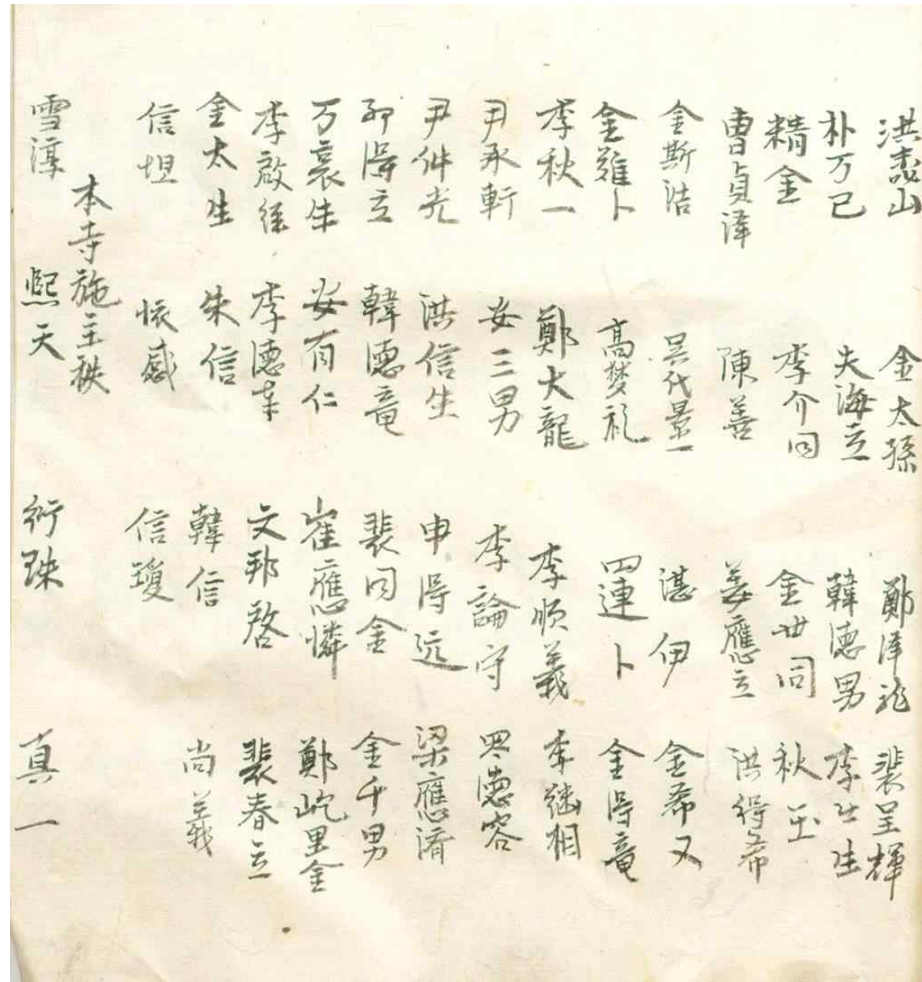 洪 山 金太孫 鄭澤龍 裴呈輝
朴万已 夫海立 韓德男 李 生
精金 李介同 金世同 秋玉
曺貞澤 陳善 姜應立 洪得希
金斯浩 吴代景一 湛伊 金希又
金雞卜 高梦礼 四連卜 金得竜
李秋一 鄭大龍 李順義 李継相
尹承軒 安三男 李論守 德容
尹件光 洪信生 申得远 梁應湑
得立 韓德竜 裴同金 金千男
万裒朱 安有仁 崔應憐 鄭屹里金
李啟 李德 文邦啓 裴春立
金太生 朱信 韓信 尚義
信坦 懷感 信瓊
本寺施主秩
雪淳 熙天 衍珠 真一